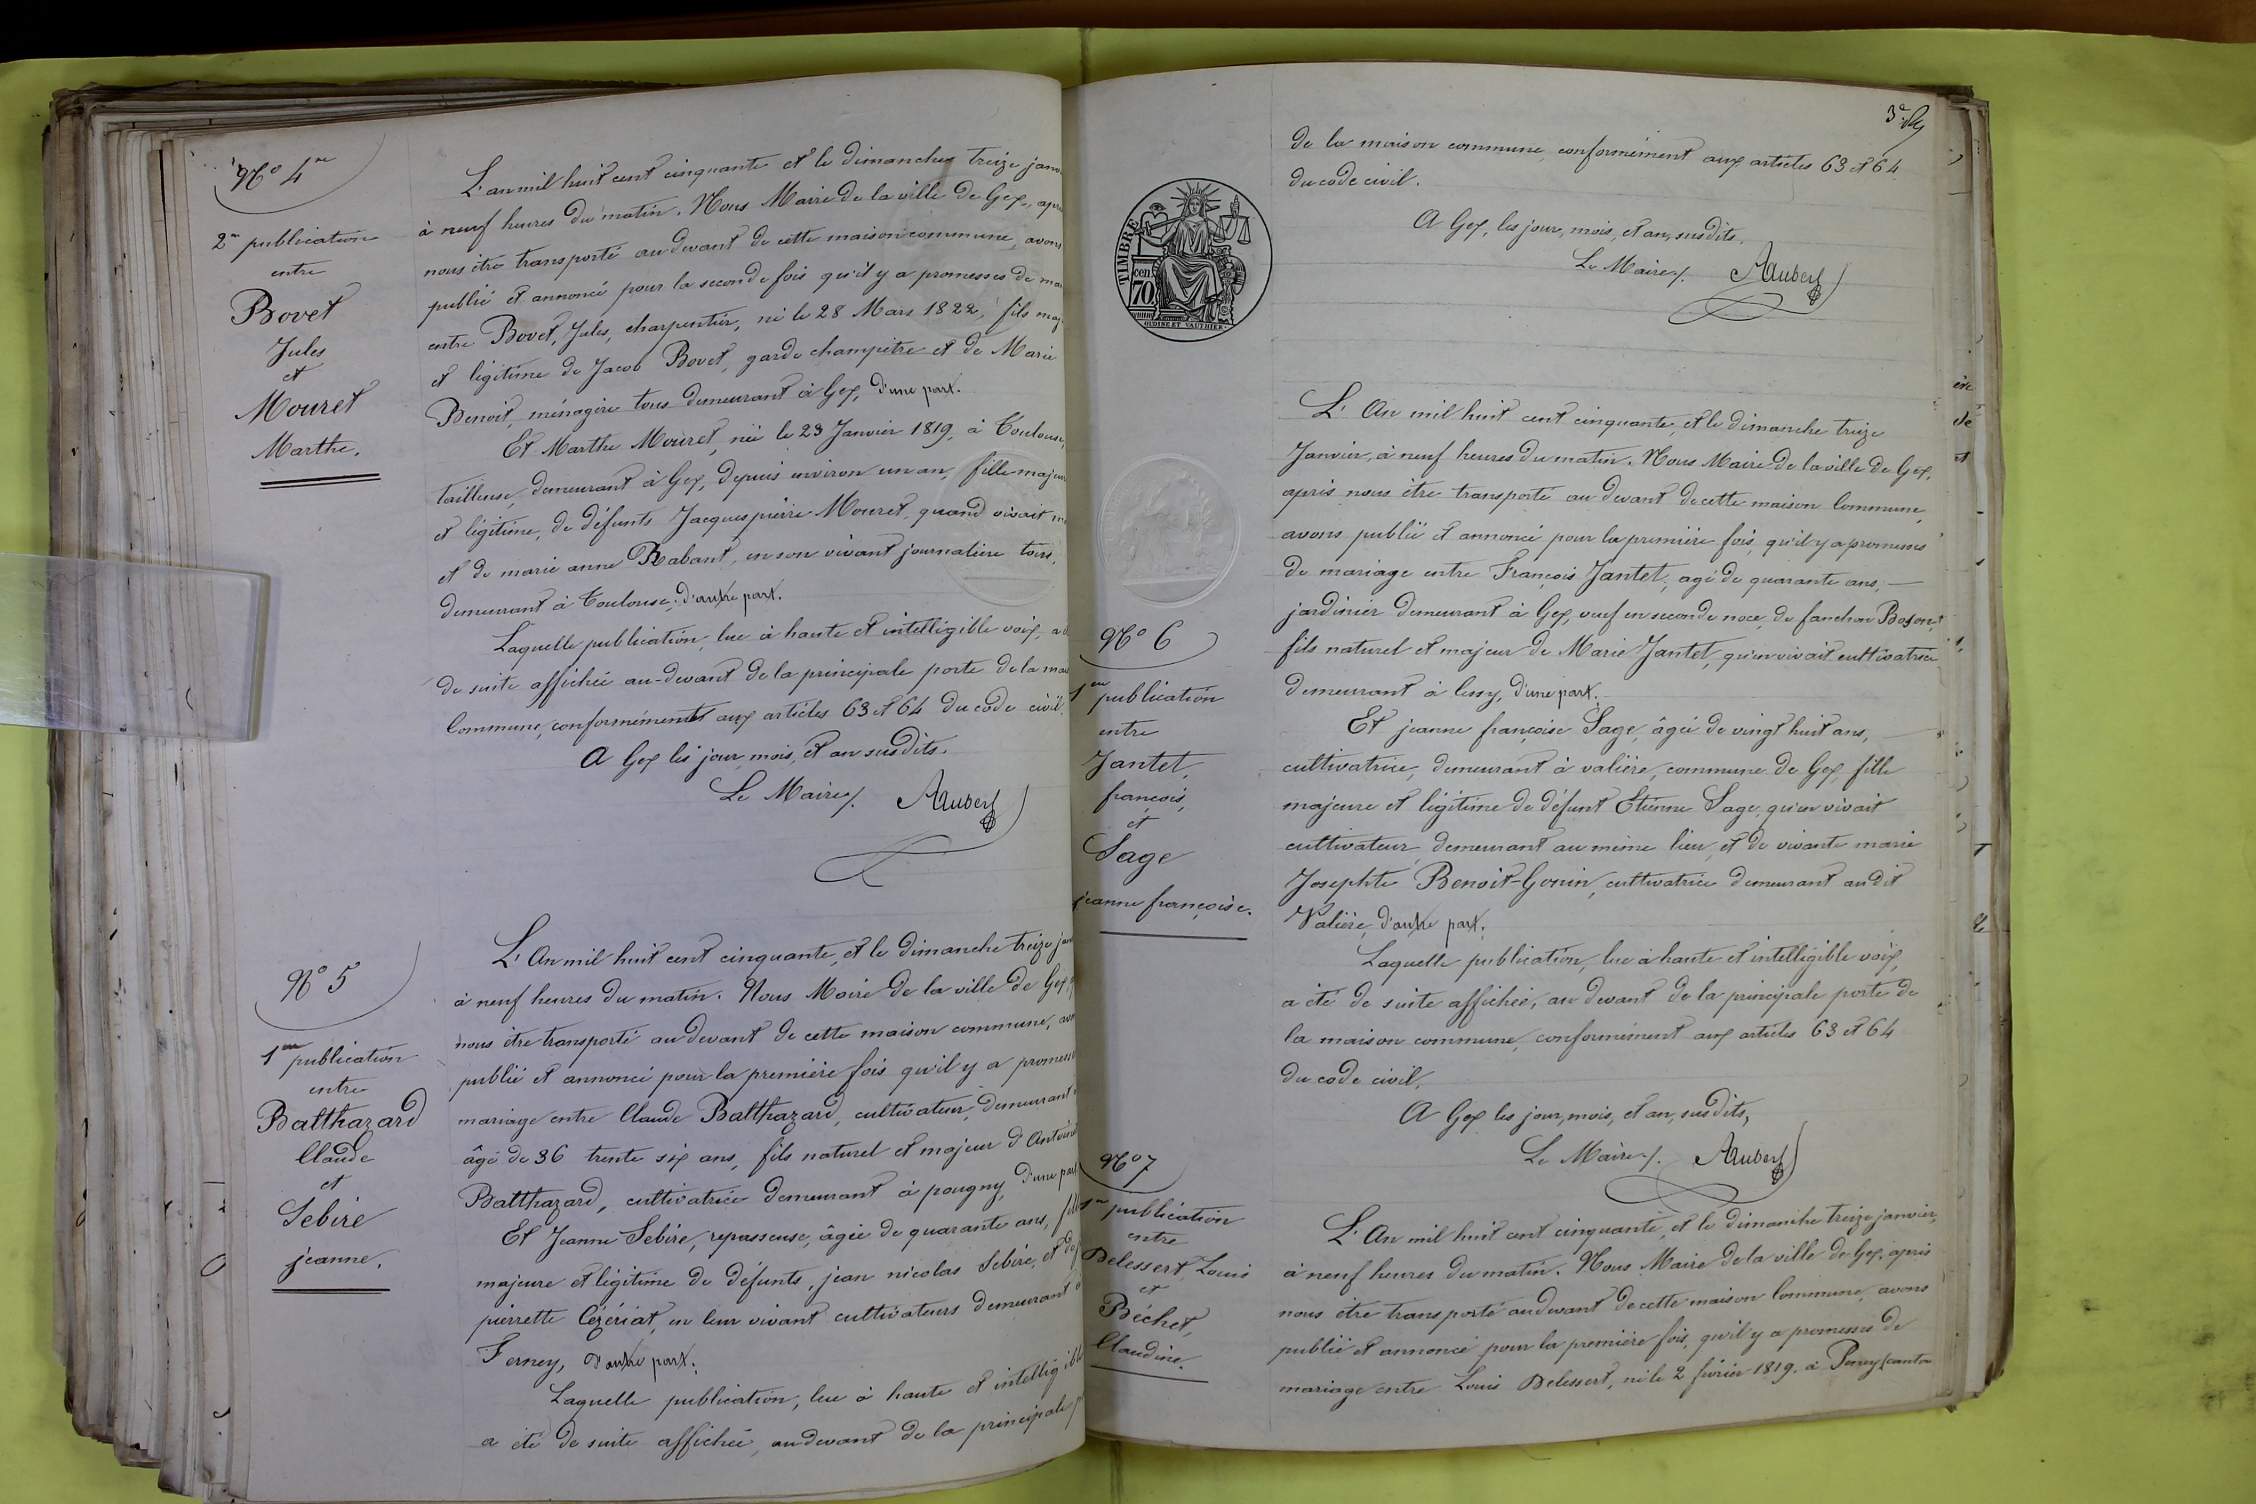 N° 4
2me publication
entre
Bovet
Jules
et
Mouret
Marthe.
L'an mil huit cent cinquante et le dimanche treize janv
à neuf heures du matin. Nous Maire de la ville de Gex, apr
nous être transporté au devant de cette maison commune, avons
publié et annoncé pour la seconde fois qu'il y a promesses de ma
entre Bovet, Jules, charpentier, né le 28 Mars 1822, fils maj
et légitime de Jacob Bovet, garde champêtre et de Marie
Benoit, ménagère tous demeurant à Gex, d'une part.
Et Marthe Mouret, née le 23 Janvier 1819, à Toulouse,
tailleuse, demeurant à Gex, depuis environ un an, fille majeur
et légitime, de défunts Jacques pierre Mouret, quand vivait
et de marie anne Rabant, en son vivant journalière tous,
demeurant à Toulouse, d'autre part.
Laquelle publication, lue à haute et intelligible voix, a
de suite affichée au-devant de la principale porte de la mai
commune, conformément aux articles 63 et 64 du code civil.
A Gex les jour, mois, et an susdits.
Le Maire/. AAubert
N° 5
1ere publication
entre
Balthazard
Claude
et
Sebire
jeanne.
L'An mil huit cent cinquante, et le dimanche treize jan
à neuf heures du matin. Nous Maire de la ville de Gex
nous être transporté au devant de cette maison commune, avo
publié et annoncé pour la première fois qu'il y a promess
mariage entre Claude Balthazard, cultivateur, demeurant
âgé de 36 trente six ans, fils naturel et majeur d'Antoin
Balthazard, cultivatrice demeurant à pougny, d'une part
Et Jeanne Sebire, repasseuse, âgée de quarante ans, fille
majeure et légitime de défunts, jean nicolas Sebire, et de
pierrette Cézériat, en leur vivant cultivateurs demeurant à
Ferney, d'autre part.
Laquelle publication, lue à haute et intelligible
a été de suite affichée, au devant de la principale p
3e
de la maison commune, conformément aux articles 63 et 64
du code civil.
A Gex, les jour, mois, et an, susdits.
Le Maire/. AAubert
TIMBRE
cen
70
OUDINE ET VAUTHIER
N° 6
1ere publication
entre
Jantet,
françois,
et
Sage
jeanne françoise.
L'An mil huit cent cinquante, et le dimanche treize
Janvier, à neuf heures du matin. Nous Maire de la ville de Gex,
après nous être transporté au devant de cette maison Commune,
avons publié et annoncé pour la première fois, qu'il y a promesses
de mariage entre François Jantet, agé de quarante ans,
jardinier demeurant à Gex, veuf en seconde noce, de fanchon Boson,
fils naturel et majeur de Marie Jantet, qu'en vivait cultivatrice
demeurant à lessy, d'une part.
Et jeanne françoise Sage, âgée de vingt huit ans,
cultivatrice, demeurant à valière, commune de Gex, fille
majeure et légitime de défunt Etienne Sage, qu'en vivait
cultivateur demeurant au même lieu, et de vivante marie
Josephte Benoit-Gonin, cultivatrice demeurant au dit
Valière, d'autre part.
Laquelle publication, lue à haute et intelligible voix,
a été de suite affichée, au devant de la principale porte de
la maison commune, conformément aux articles 63 et 64
du code civil.
A Gex les jour, mois, et an, susdits,
Le Maire/. AAubert
N° 7
1re publication
entre
Delessert, Louis
et
Béchet,
Claudine.
L'An mil huit cent cinquante, et le dimanche treize janvier,
à neuf heures du matin. Nous Maire de la ville de Gex, après
nous être transporté au devant de cette maison Commune, avons
publié et annoncé pour la première fois, qu'il y a promesses de
mariage entre Louis Delessert, né le 2 février 1819, à Peney (canton